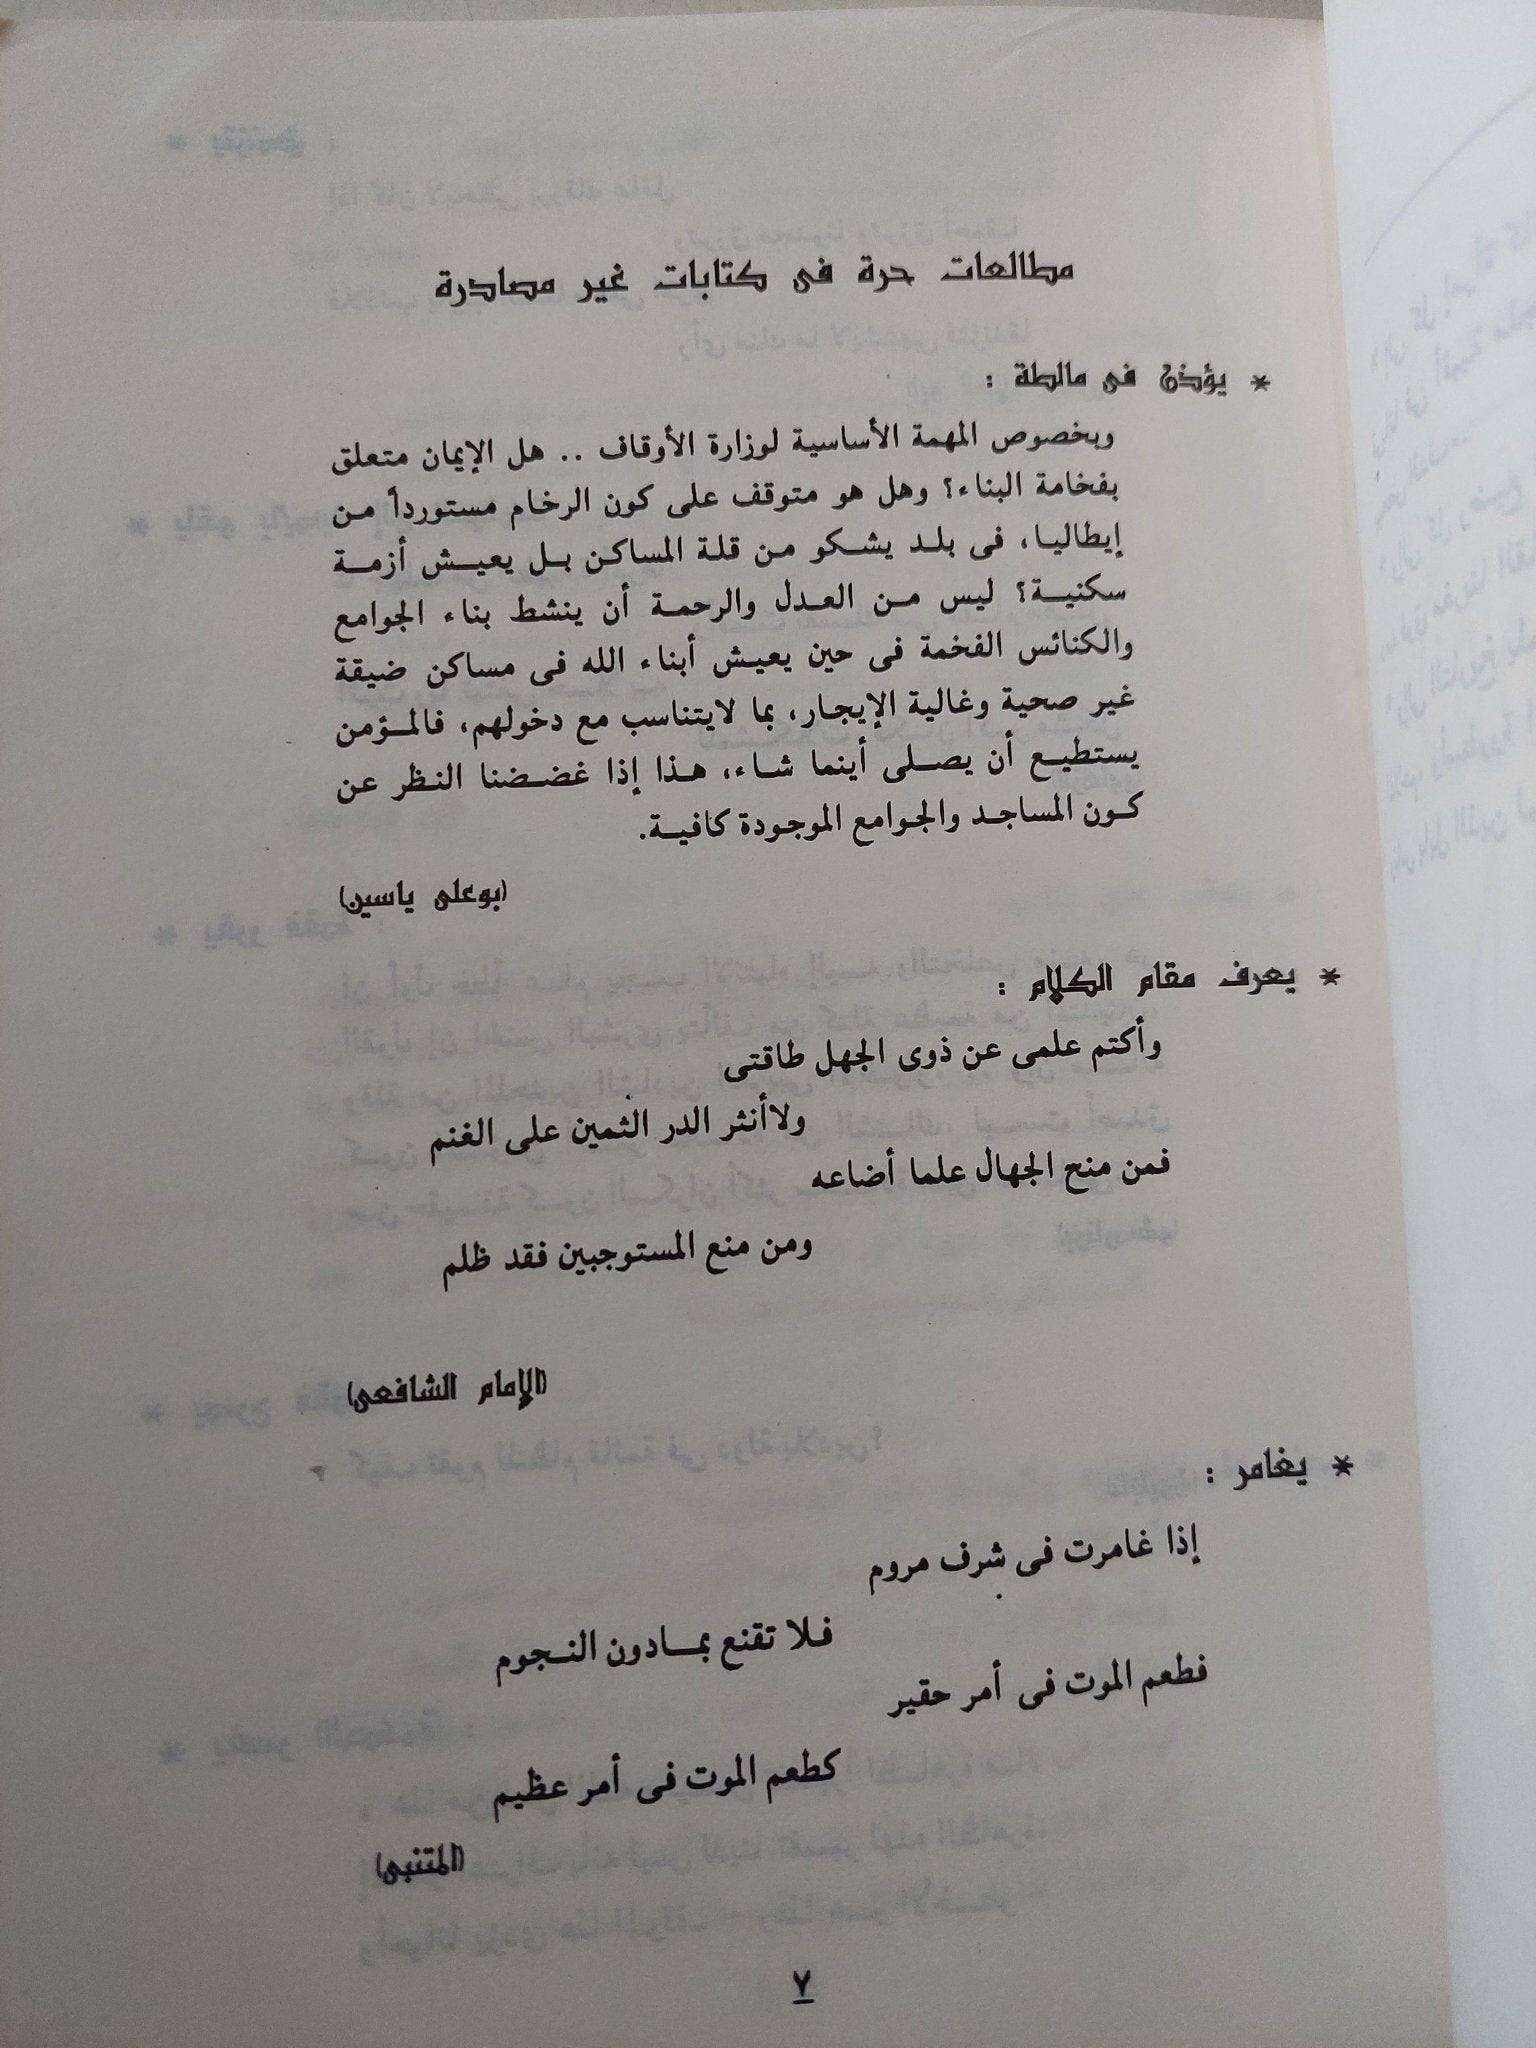 مطالعات حرة فى كتابات غير مصادرة
* يؤذن فى مالطة :
وبخصوص المهمة الأساسية لوزارة الأوقاف .. هل الإيمان متعلق
بفخامة البناء؟ وهل هو متوقف على كون الرخام مستورداً من
إيطاليا، فى بلد يشكو من قلة المساكن بل يعيش أزمة
سكنية؟ ليس من العدل والرحمة أن ينشط بناء الجوامع
والكنائس الفخمة فى حين يعيش أبناء الله فى مساكن ضيقة
غير صحية وغالية الإيجار، بما لايتناسب مع دخولهم، فالمؤمن
يستطيع أن يصلى أينما شاء، هذا إذا غضضنا النظر عن
كون المساجد والجوامع الموجودة كافية.
(بوعلى ياسين)
* يعرف مقام الكلام :
وأكتم علمى عن ذوى الجهل طاقتى
ولاأنثر الدر الثمين على الغنم
فمن منح الجهال علما أضاعه
ومن منع المستوجبين فقد ظلم
(الإمام الشافعى)
* يغامر :
إذا غامرت فى شرف مروم
فلا تقنع بمادون النجوم
فطعم الموت فى أمر حقير
كطعم الموت فى أمر عظيم
(المتنبى)
٧